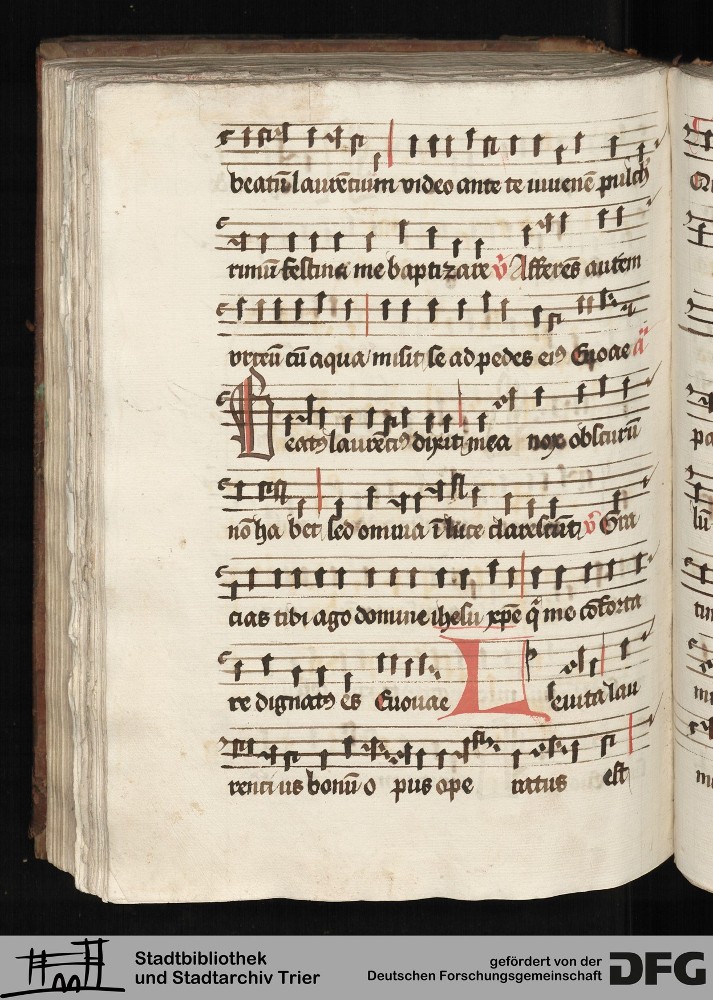 beatū laurētium video ante te iuuenē pulch
rimū festina me baptizare v̄ Afferēs autem
vrceū cū aqua misit se ad pedes ei⁹ Euouae ā
Beat⁹ laurēci⁹ dixit mea nox obscurū
nō ha bet sed omnia ī luce clarescūt v̄ Gra
cias tibi ago domine ihesu xp̄e q̄ me cōforta
re dignat⁹ es Euouae Leuita lau
renti us bonū o pus ope ratus est
Stadtbibliothek
und Stadtarchiv Trier
gefördert von der
Deutschen Forschungsgemeinschaft
DFG